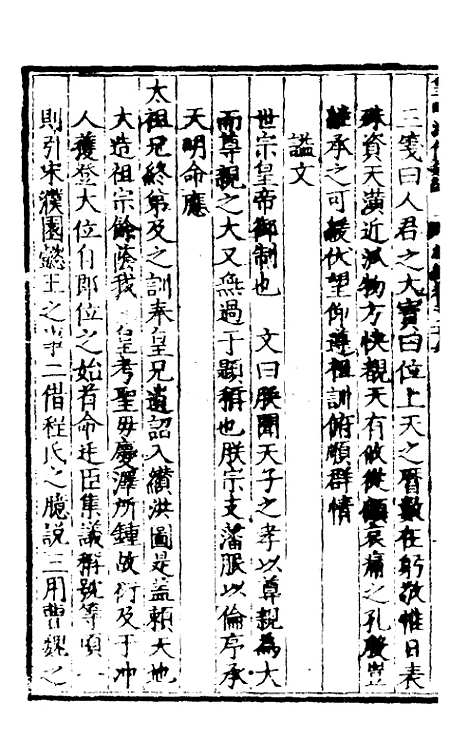 三箋曰人君之大寶曰位上天之曆數在躬敬惟日表
殊資天潢近派物方快覩天有攸從顧哀痛之孔殷豈
繼承之可緩伏望仰遵祖訓俯順群情
諡文
世宗皇帝御制也 文曰朕聞天子之孝以尊親為大
而尊親之大又無過于顯稱也朕宗支藩服以倫序承
天明命應
太祖兄終弟及之訓奉皇兄遺詔入纘洪圖是盖賴天地
大造祖宗餘蔭我 皇考聖母慶澤所鍾故衍及于冲
人獲登大位自即位之始首命廷臣集議稱號等項
則引宋濮園懿王之事二借程氏之臆說三用曹魏之